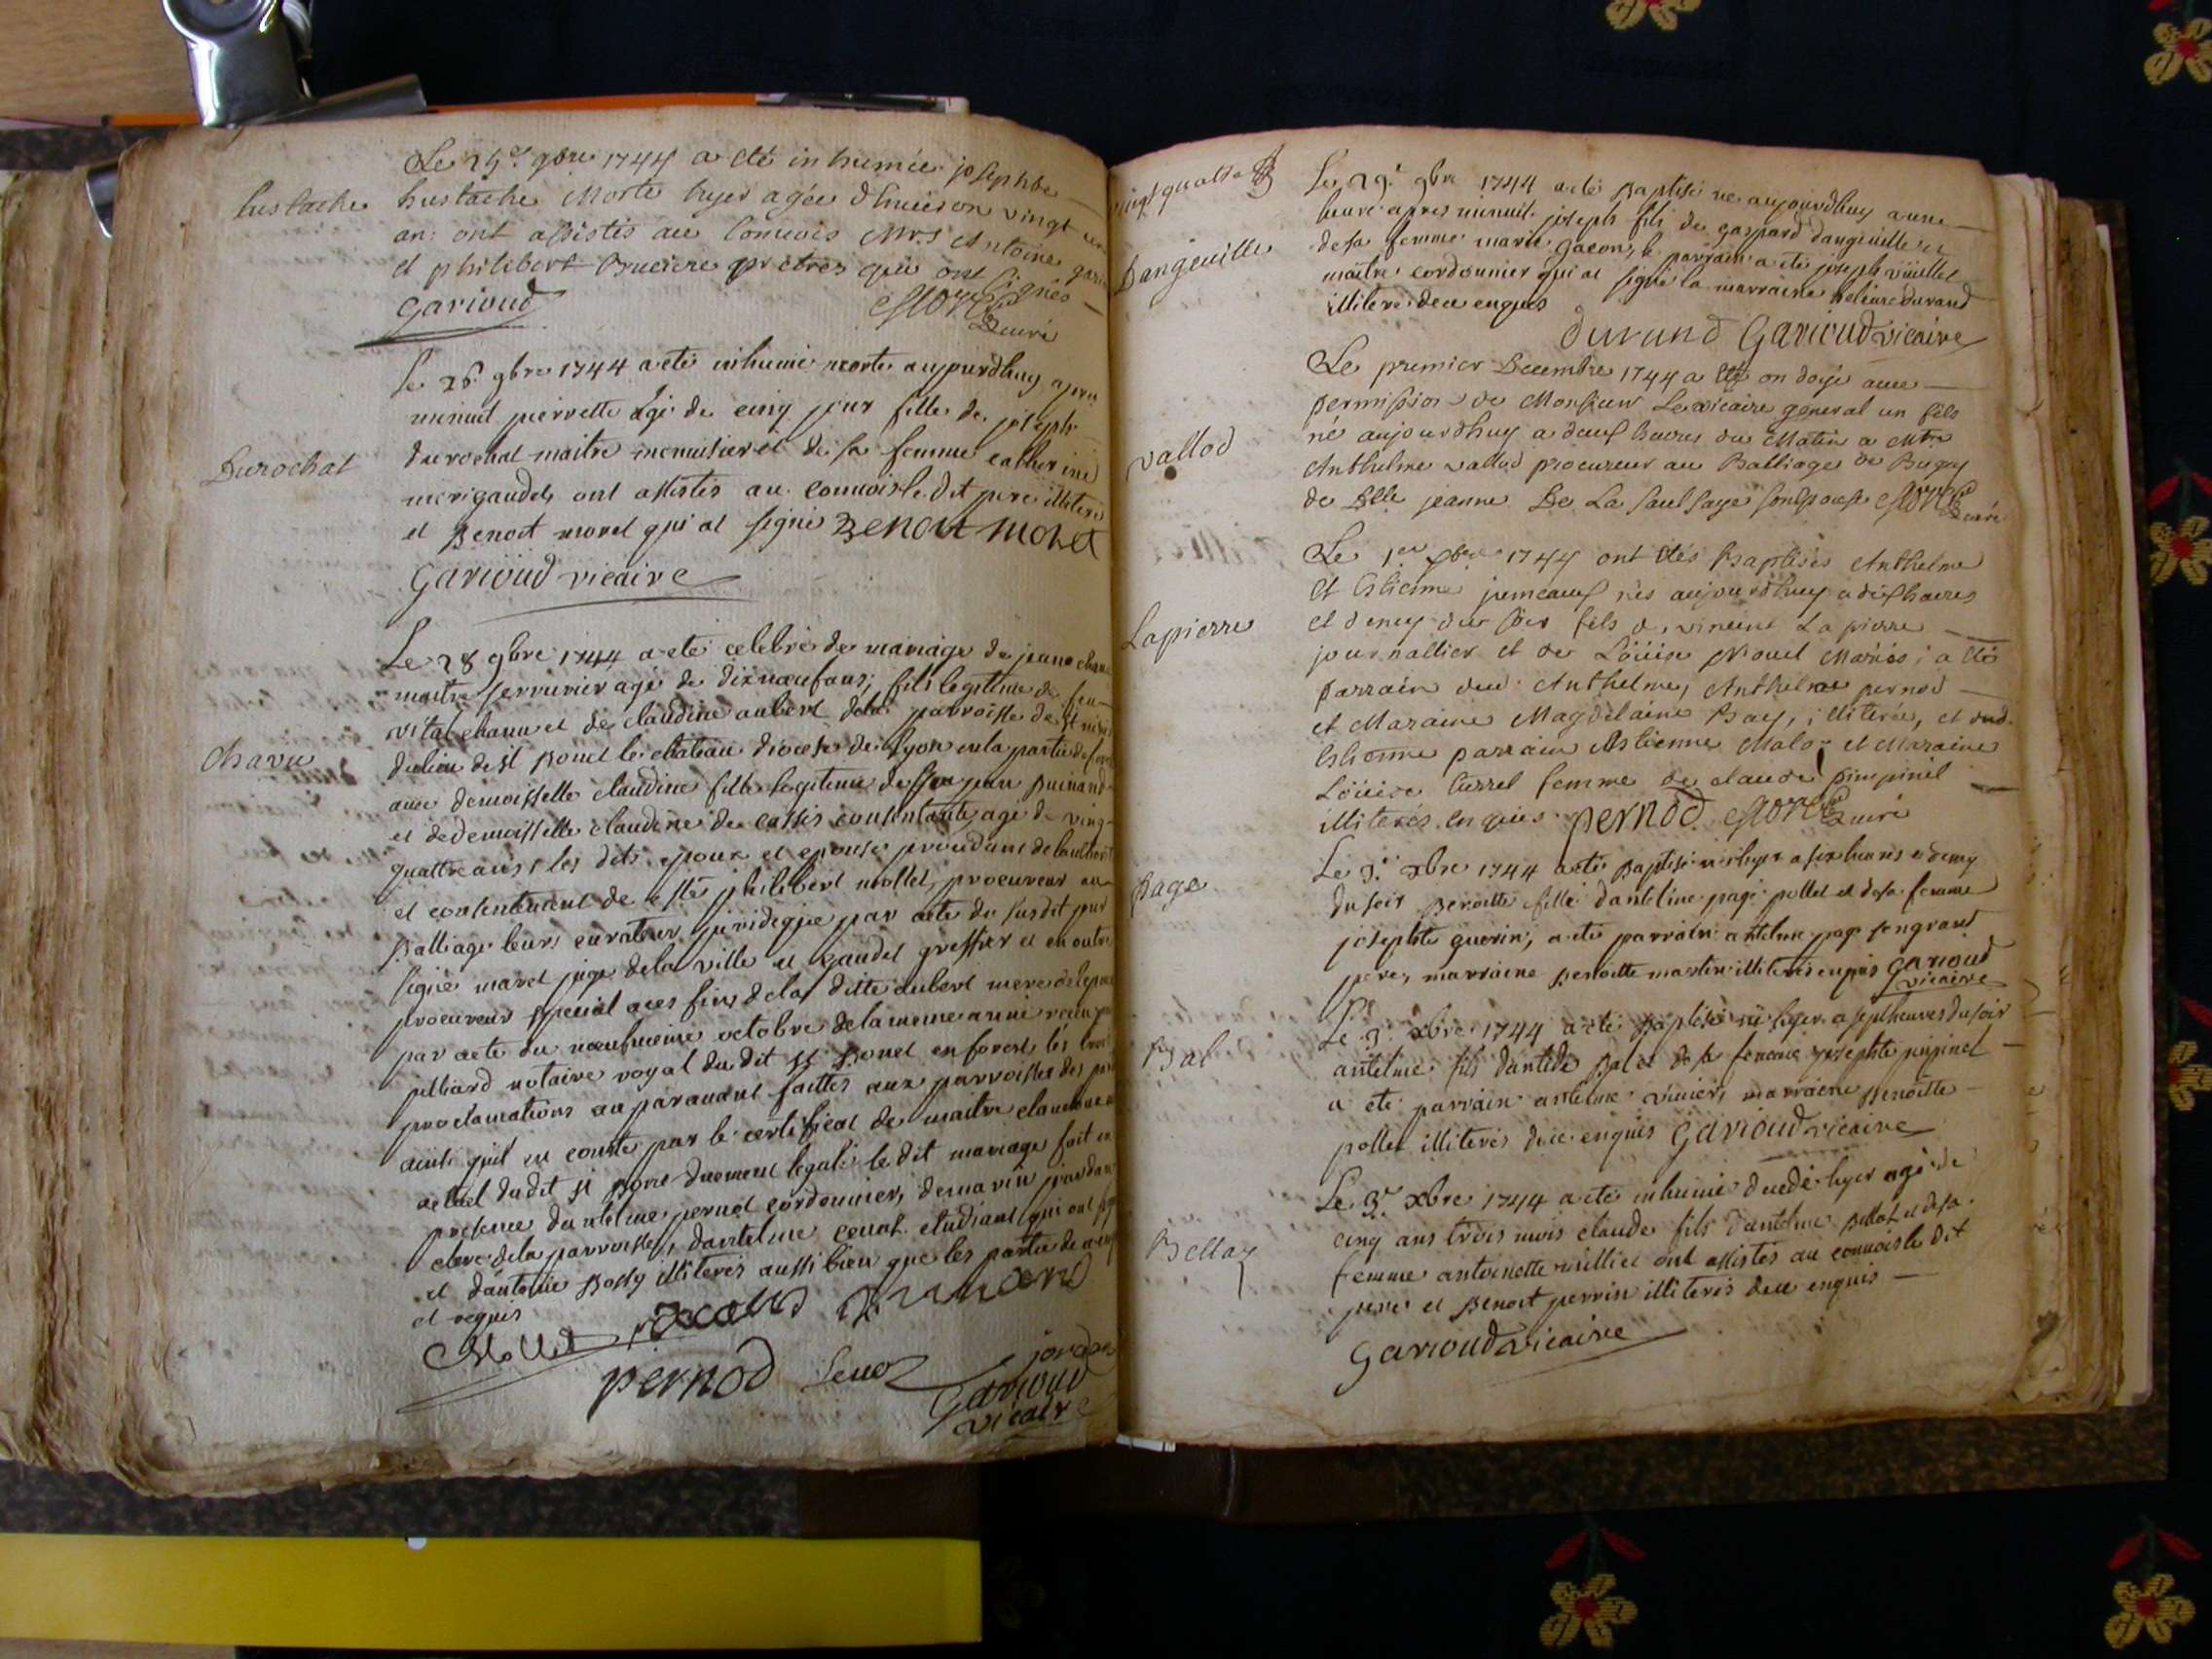 Le 25e 9bre 1744 a été inhumée josephte
Eustache
hustache Morte hyer agée d'huiron vingt un
an: ont assistés au Convois Mrs Antoine gario
et philibert Bruciere prêtres qui ont signés
Garioud
curé
Le 26 9bre 1744 a eté inhumé morte aujourdhuy apres
minuit pierrette agé de cinq jour fille de joseph
Durochat
durochat maitre menuisier et de sa femme catherine
merigaudet, ont assistés au convois le dit pere illiteré
et Benoit morel qui at signé BENOIT MOREL
Garioud vicaire
Le 28 9bre 1744 a eté celebré de mariage de jeune
maitre serrurier agé de dixnoeuf ans; fils legitime de feu
vital chanu et de claudine aubert de la parroisse de st
Chavu
du lieu de st Bonet le chateau diocese de Lyon en la partie de
avec demoisselle claudine fille legitime de feu jean
et de demoisselle claudine de cassis consentante, agé de ving-
quattre ans; les dits epoux et epouse procedant de
et consentement de philibert mollet, procureur au
Balliage leurs curateur juridique par acte du susdit jour
signé marel juge de la ville et gaudet greffier et en outre
procureur special aces fins de la ditte aubert mere de l'epoux
par acte du noeufvieme octobre de la meme année recu par
notaire royal du dit st Bonet en forest, les trois
proclamations auparavant faittes aux parroisses des
ainsi quil en conste par le certificat de maitre
du dit st Bonet duement legalisé le dit mariage fait en
presence dantelme pernod cordonnier, demarin jourdan
clerc de la parroisse, dantelme cenat etudiant qui ont
et dantoine Bossy illiterés aussi bien que les parties de
et requis
Mollet
pernod
jordan
Garioud
vicaire
vingt quatre
Le 29e 9bre 1744 a eté Baptisé né aujourdhuy a une
heure apres minuit joseph fils de gaspard dangeuille et
Dangeuille
de sa femme marie gacon, le parrain a eté joseph
maitre cordonnier qui at signé la marraine durand
illiteré de ce enquis
durand Garioud vicaire
Le premier Decembre 1744 a été ondoyé avec
permission de Monsieur Le vicaire general un fils
né aujourdhuy a deux heures du Matin a Mtre
vallod
Anthelme vallod procureur au Balliage de Bugey
de Dlle jeanne De La Saulsaye son epouse
curé
Le 1er Xbre 1744 ont étés Baptisés Anthelme
et Estienne jumeaux nés aujourdhuy a dix heures
Lapierre
et demy du soir fils de vincent Lapierre
journallier et de Loüise Nouet Mariés; a été
parrain dud. Anthelme, Anthelme pernod
et Maraine Magdelaine Bay, illiterée, et dud.
Estienne parrain Estienne Malo et Maraine
Loüise femme de claude pimpinel
illiterés enquis pernod
curé
Le 3e Xbre 1744 a eté Baptisé né hyer a six heures et demy
page
du soir Benoitte fille dantelme page pollet et de sa femme
josephte guerin, a eté parrain antelme page son grand
pere, marraine Benoitte martin illiterés enquis Garioud
vicaire
Le 3e Xbre 1744 a eté Baptisé né hyer a sept heures du soir
Bal
antelme fils dantide Bal et de sa femme josephte pinpinel
a eté parrain antelme vivier, marraine Benoitte
pollet illiterés de ce enquis Garioud vicaire
Le 3e Xbre 1744 a eté inhumé decedé hyer agé de
cinq ans trois mois claude fils dantelme Bellat et de sa
Bellay
femme antoinette milliet ont assistés au convois le dit
pere et Benoit perrin illiterés de ce enquis
Garioud vicaire